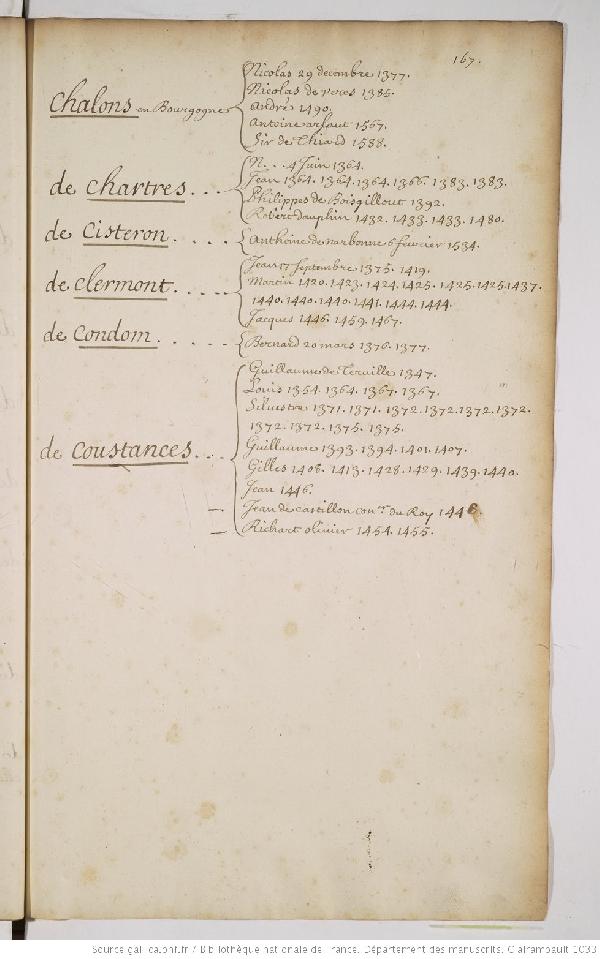 167.
Chalons en Bourgogne
Nicolas 29 decembre 1377.
Nicolas de veres 1385.
André 1490.
Antoine arfaut 1567.
Sir de Thiard 1588.
de Chartres . . .
N. . . 4 Juin 1364.
Jean 1364. 1364. 1364. 1366. 1383. 1383.
Philippes de Boisgillout 1392.
Robert dauphin 1432. 1433. 1433. 1480.
de Cisteron . . . . .
Anthoine de narbonne 6 fevrier 1534.
de Clermont . . . . .
Jean 17 septembre 1375. 1419.
Martin 1420. 1423. 1424. 1425. 1425. 1425. 1437.
1440. 1440. 1440. 1441. 1444. 1444.
Jacques 1446. 1459. 1467.
de Condom . . . . .
Bernard 20 mars 1376. 1377.
de Coustances . . .
Guillaume de Terville 1347.
Louis 1354. 1364. 1367. 1367.
Silvestre 1371. 1371. 1372. 1372. 1372. 1372.
1372. 1372. 1375. 1375.
Guillaume 1393. 1394. 1401. 1407.
Gilles 1408. 1413. 1428. 1429. 1439. 1440.
Jean 1446.
– Jean de castillon con.er du Roy 1446.
– Richart olivier 1454. 1455.
Source gallica.bnf.fr / Bibliothèque nationale de France. Département des manuscrits. Clairambault 1033